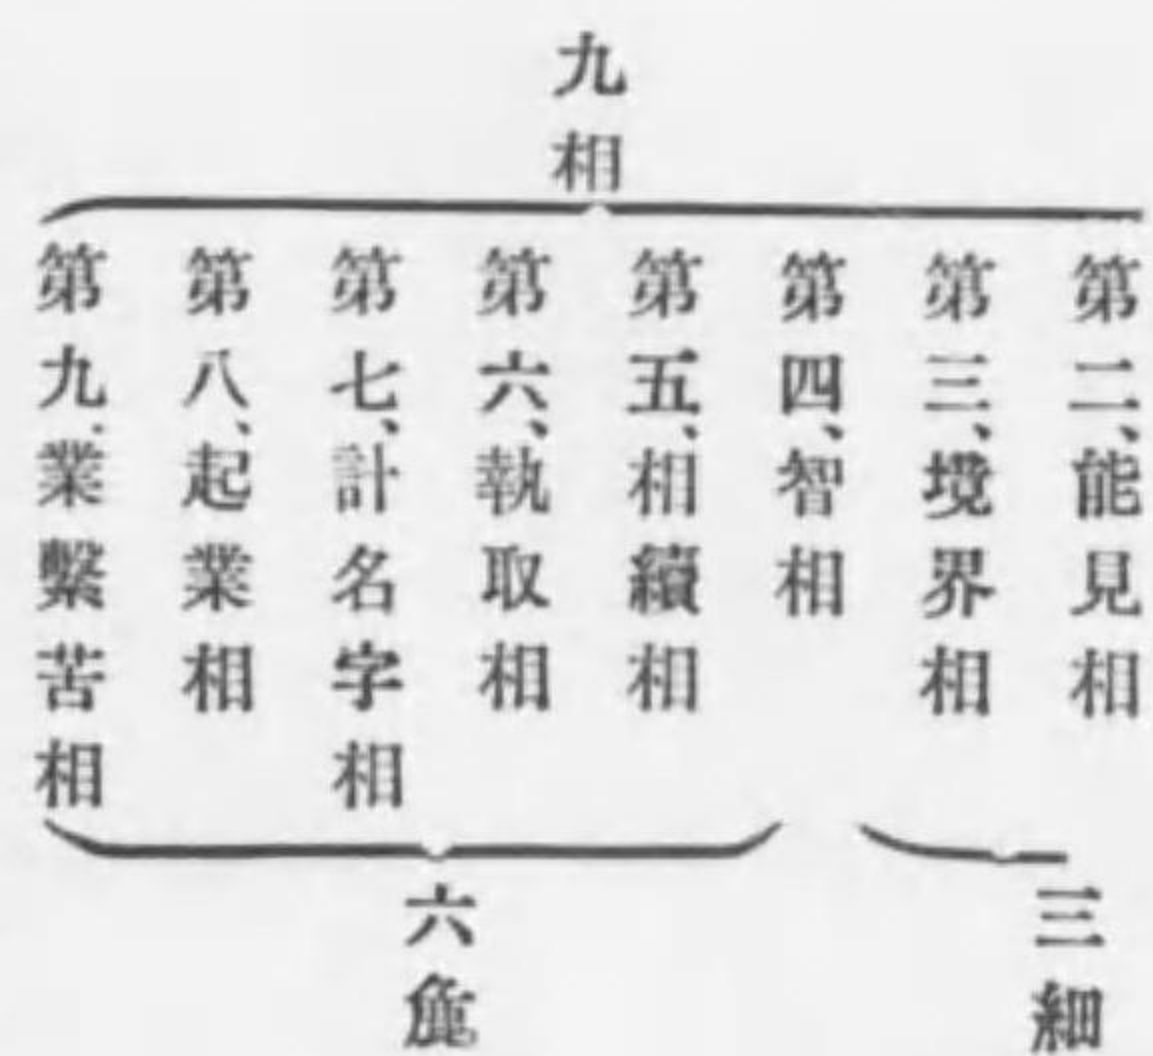 九相
第二、能見相
第三、境界相
第四、智相
第五、相續相
第六、執取相
第七、計名字相
第八、起業相
第九、業繫苦相
三細
六麁